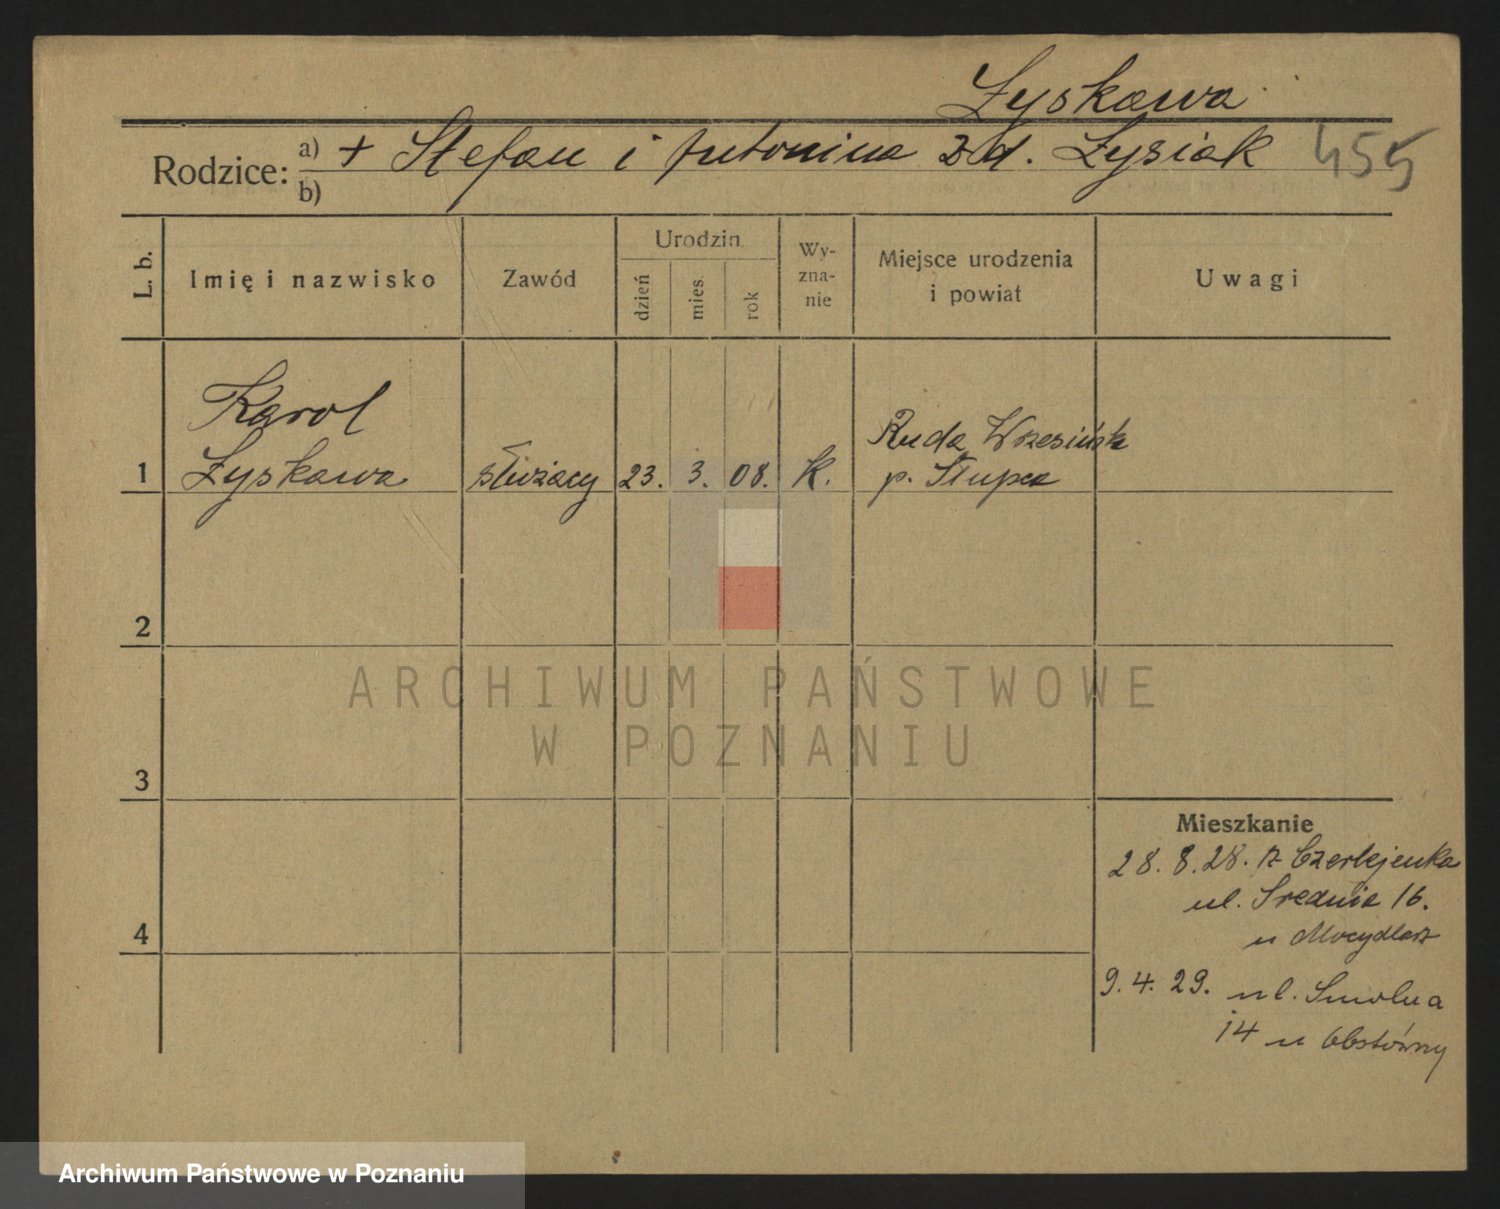 Łyskawa
Rodzice: a) + Stefan i Antonina z d. Łysiak 455
b)
L. b.
Imię i nazwisko
Zawód
Urodzin
dzień
mies.
rok
Wy-
zna-
nie
Miejsce urodzenia
i powiat
Uwagi
Karol
1 Łyskawa służący 23. 3. 08. K. Ruda Wrzesińsk
p. Słupca
2
3
4
ARCHIWUM PAŃSTWOWE
W POZNANIU
Mieszkanie
28. 8. 28. z Czerlejenka
ul. Średnia 16.
u Mocydlarz
9. 4. 29. ul. Smolna
14 u
Archiwum Państwowe w Poznaniu